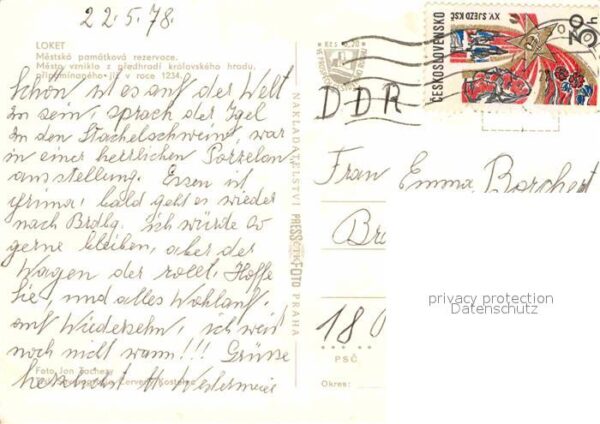 22.5.78.
LOKET
Městská památková rezervace.
Město vzniklo z předhradí královského hradu,
připomínaného již v roce 1234.
Schön ist es auf der Welt
zu sein, sprach der Igel
zu den Stachelschwein, war
in einer herrlichen Porzelan
ausstellung. Essen ist
prima, bald geht es wieder
nach Brdbg. ich würde so
gerne bleiben, aber der
Wagen der rollt. Hoffe
Sie, und alles Wohlauf.
auf Wiedersehn, ich weis
noch nicht wann!!! Grüsse
herzlichst H Westermeier
Foto Jan Tachezy
Červený Kostelec
NAKLADATELSTVÍ PRESSFOTO PRAHA
Kčs
ČESKOSLOVENSKO
XV. SJEZD KSČ
DDR
Frau Emma Borchert
Br
180
PSČ
Okres:
privacy protection
Datenschutz